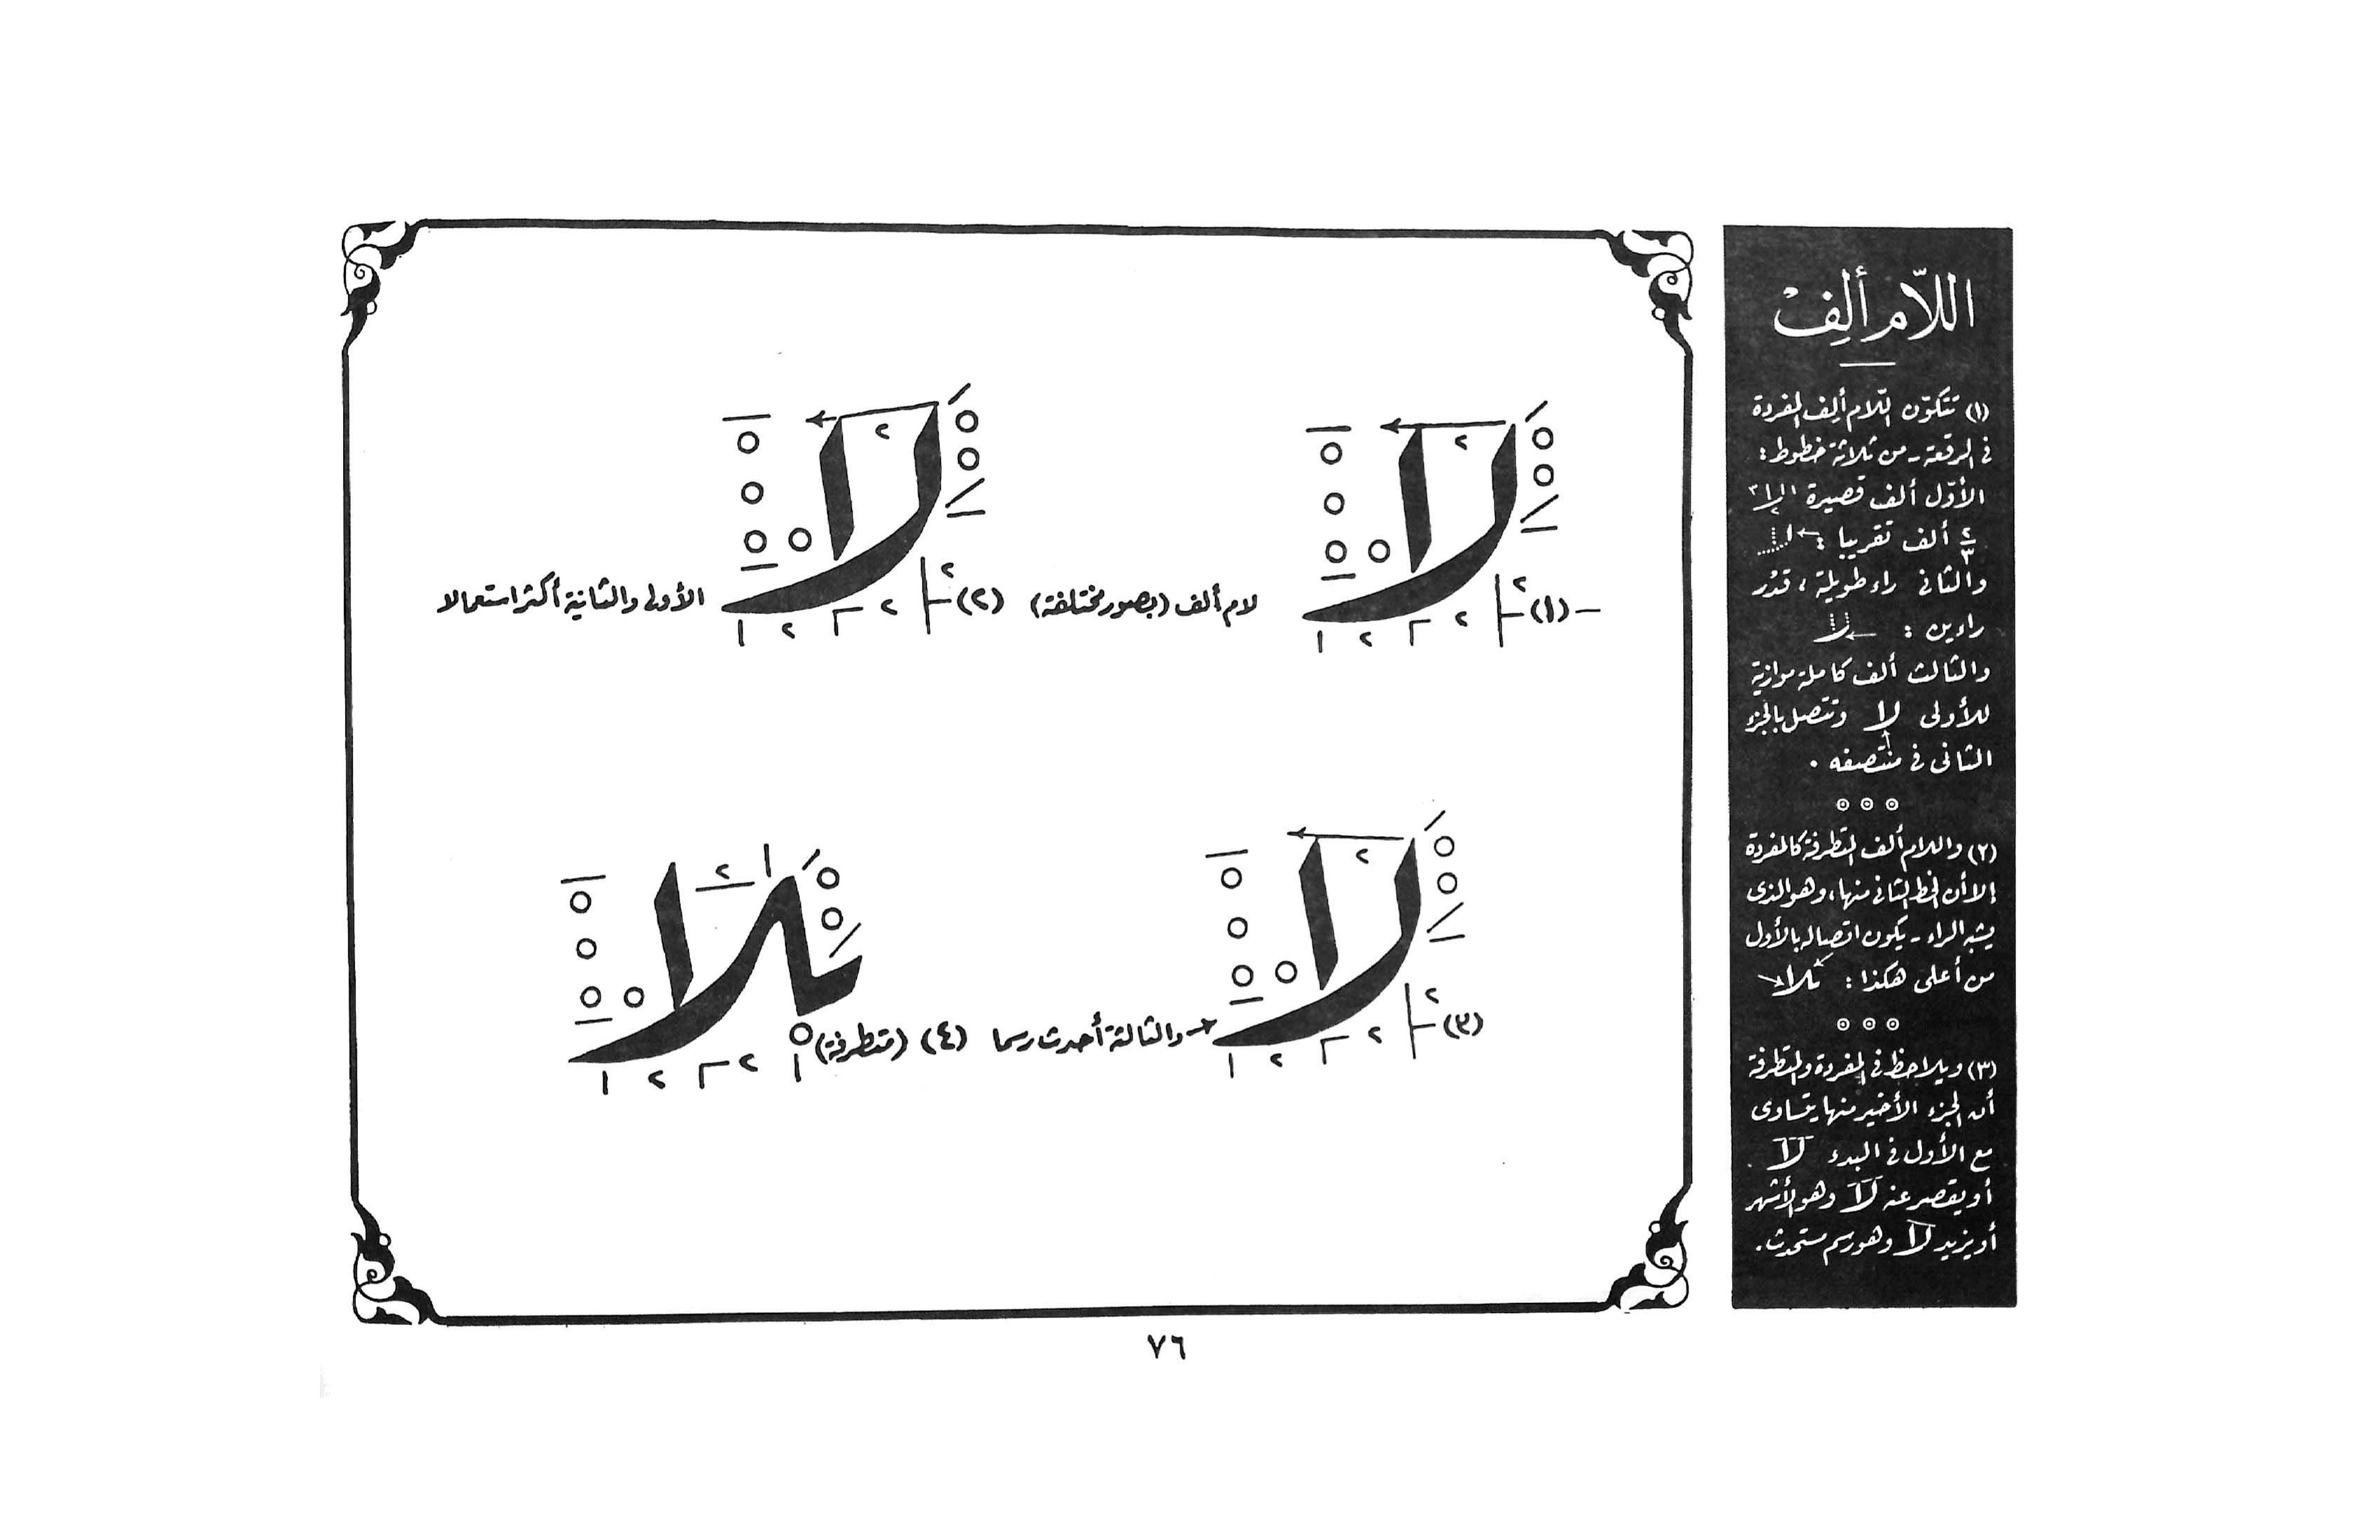 اللاّم ألِفْ
(١) تتكوّن اللام ألِف المفردة
في الرقعة - من ثلاثة خطوط :
الأوّل ألف قصيرة
٢/٣ ألف تقريبا :
والثاني راء طويلة ، قدْر
راءين :
والثالث ألف كاملة موازية
للأولى لا وتتصل بالجزء
الثاني في منتصفه .
(٢) واللام ألف المتطرفة كالمفردة
إلا أن الخط الثاني منها ، وهو الذي
يشبه الراء - يكون اتصاله بالأول
من أعلى هكذا : ـلا
(٣) ويلاحظ في المفردة والمتطرفة
أن الجزء الأخير منها يتساوى
مع الأول في البدء لا .
أو يقصر عنه لا وهو الأشهر
أو يزيد لا وهو رسم مستحدث .
لا
٢
١ ٢ ٢ ٢
- (١) لام ألف (بصور مختلفة)
لا
٢
١ ٢ ٢ ٢
(٢) الأولى والثانية أكثر استعمالا
لا
٢
١ ٢ ٢ ٢
(٣) والثالثة أحدث رسما
ـلا
١ ٢
١ ٢ ٢ ١
(٤) (متطرفة)
٧٦